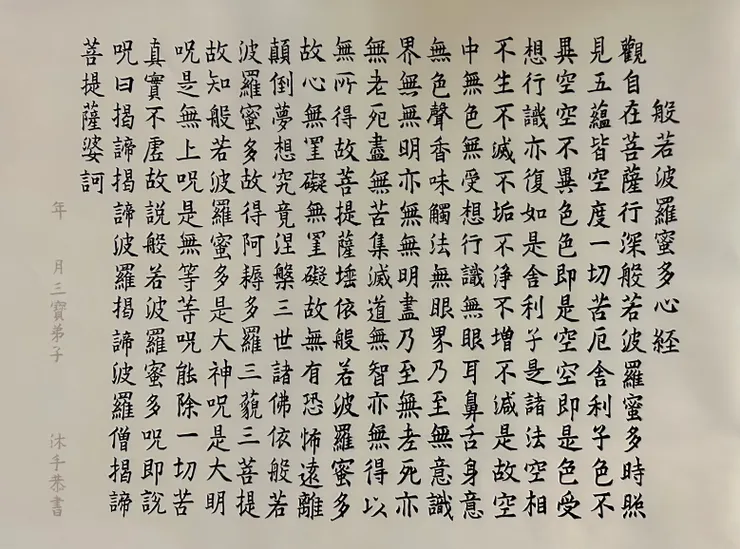 般若波羅蜜多心経
觀自在菩薩行深般若波羅蜜多時照
見五蘊皆空度一切苦厄舍利子色不
異空空不異色色即是空空即是色受
想行識亦復如是舍利子是諸法空相
不生不滅不垢不淨不增不減是故空
中無色無受想行識無眼耳鼻舌身意
無色聲香味觸法無眼界乃至無意識
界無無明亦無無明盡乃至無老死亦
無老死盡無苦集滅道無智亦無得以
無所得故菩提薩埵依般若波羅蜜多
故心無罣礙無罣礙故無有恐怖遠離
顛倒夢想究竟涅槃三世諸佛依般若
波羅蜜多故得阿耨多羅三藐三菩提
故知般若波羅蜜多是大神呪是大明
呪是無上呪是無等等呪能除一切苦
真實不虛故說般若波羅蜜多呪即說
呪曰揭諦揭諦波羅揭諦波羅僧揭諦
菩提薩婆訶
年 月三寶弟子 沐手恭書